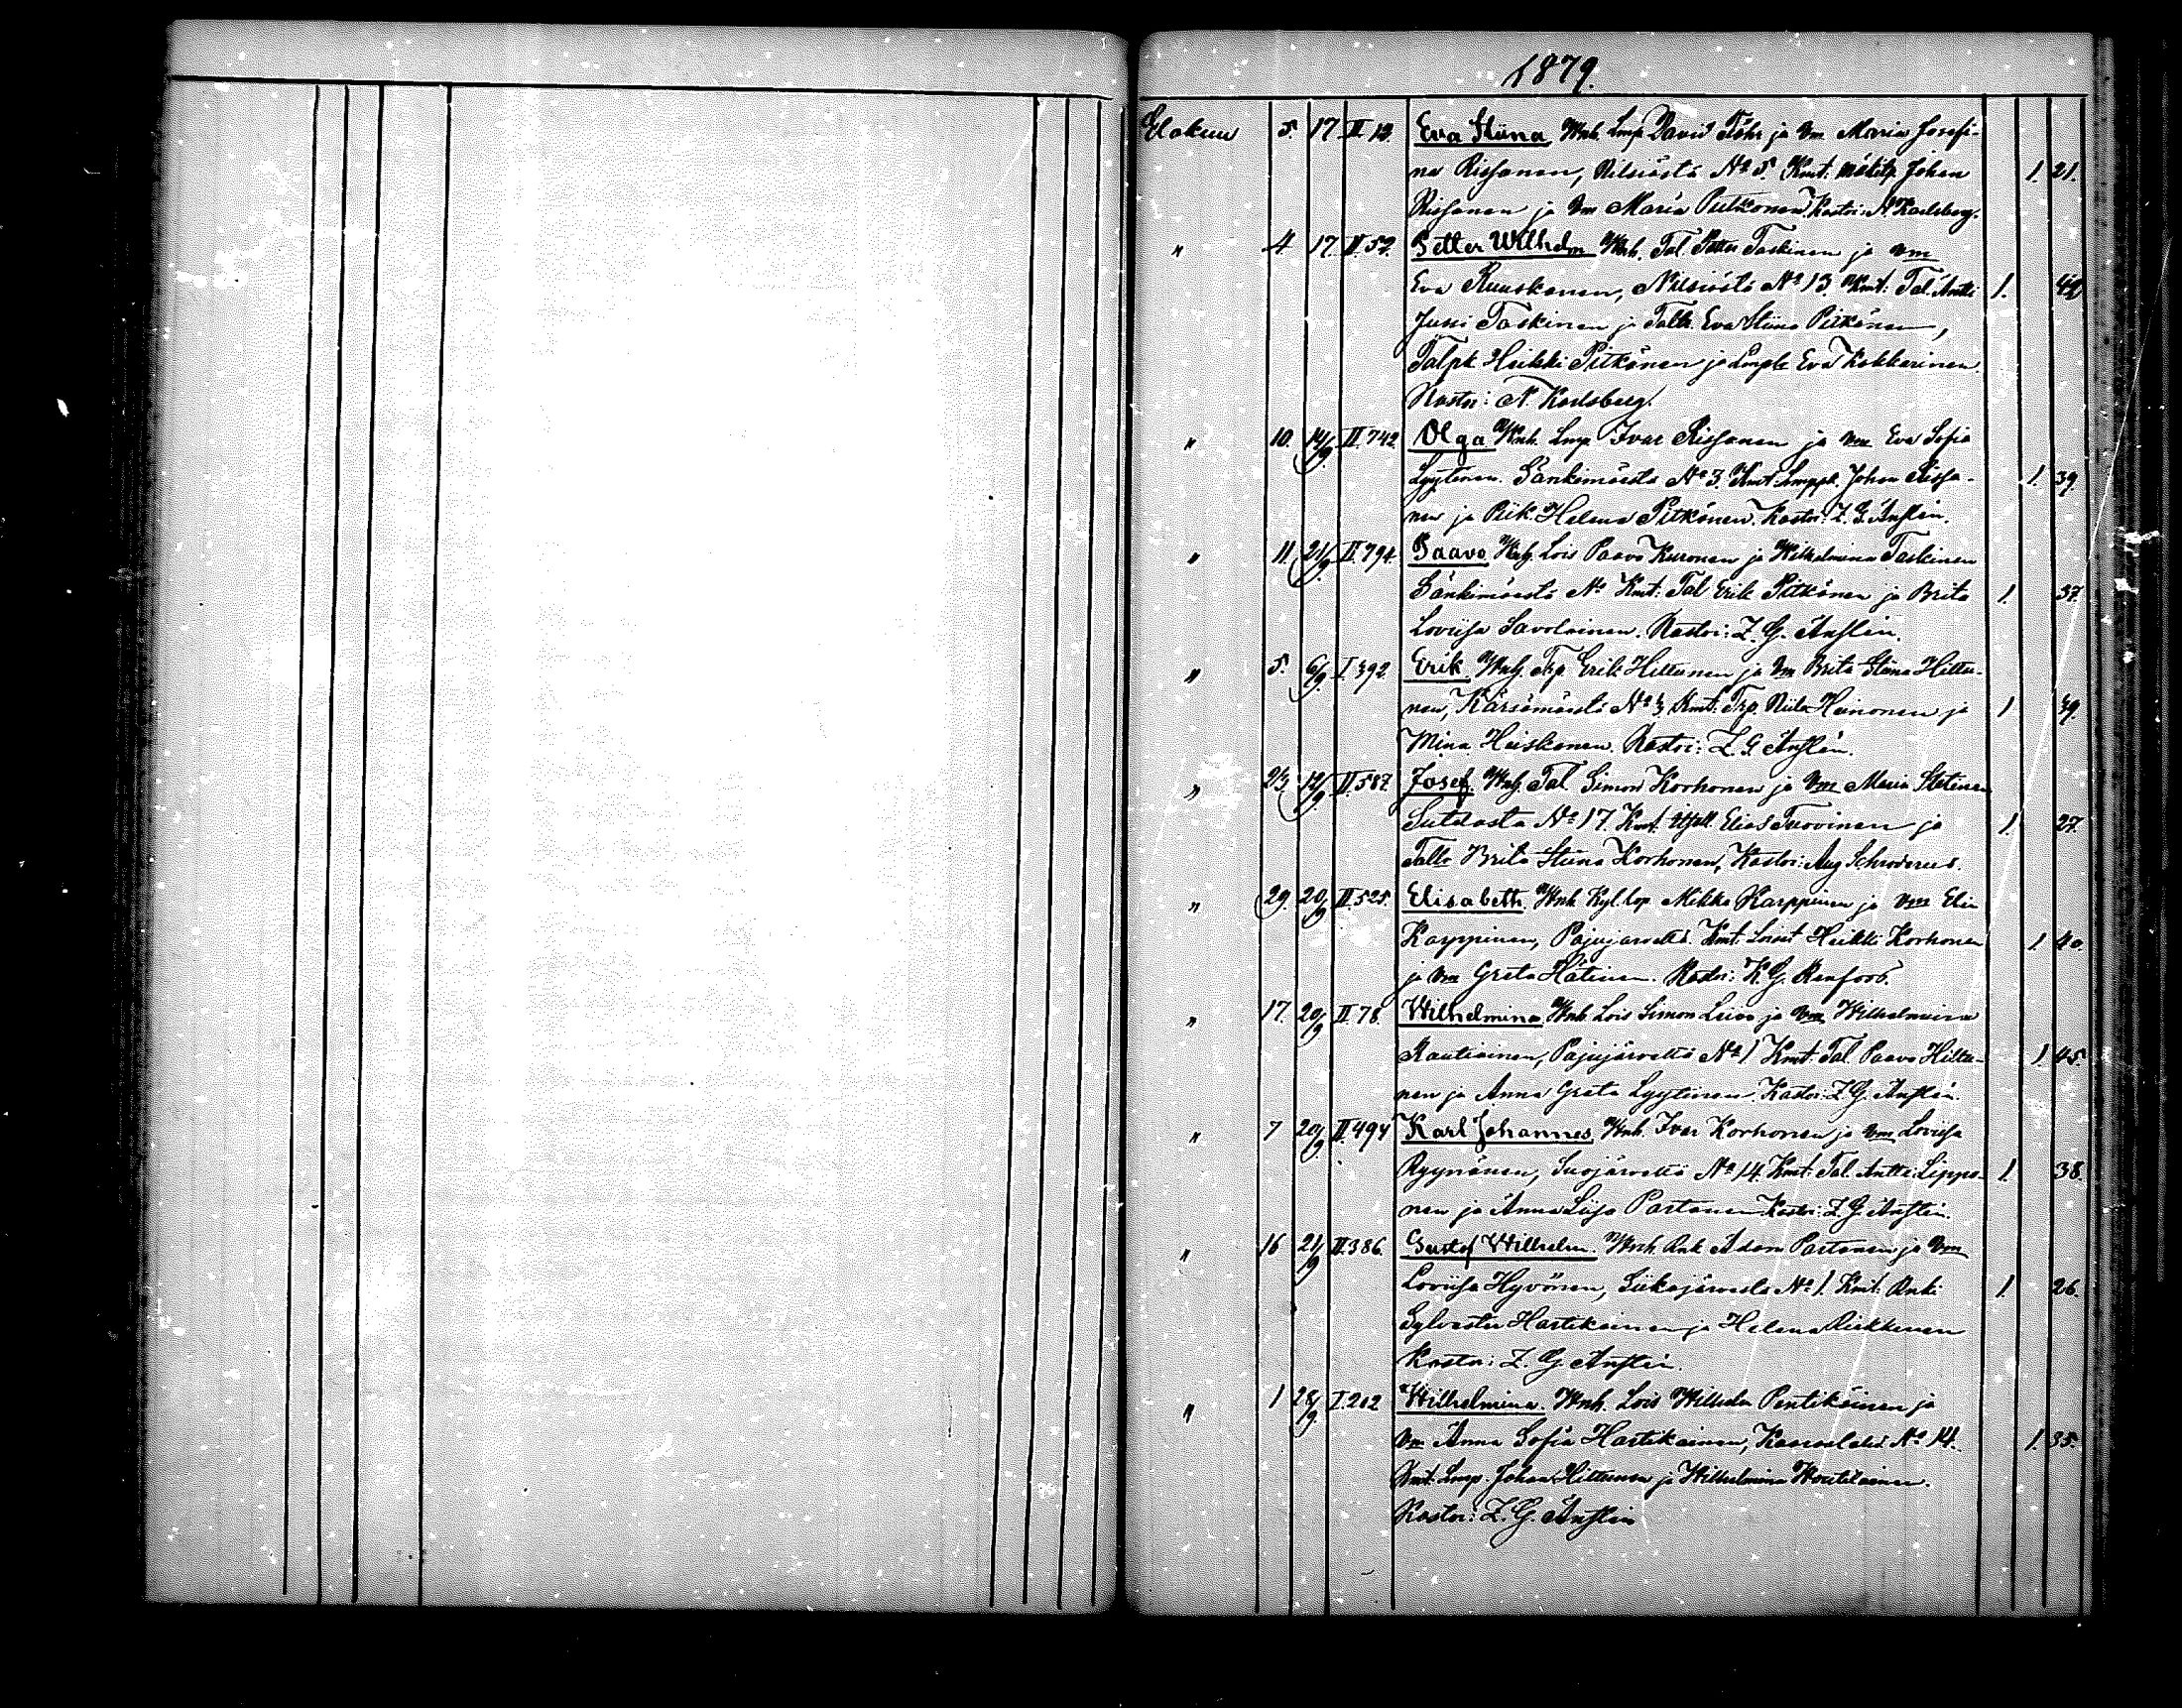 1879.
Elokuu 5. 17 II 12. Eva Stiina Wnh. Lmp David Föhr ja Vm Maria Josefi-
na Rissanen, Nilsiästä No 5 Kmt: mäkitp Johan 1. 21.
Rissanen ja Vm Maria Pitkänen. Kastoi: N. Karlsberg.
" 4 17. II 52. Petter Wilhelm Wnh. Tal. Petter Taskinen ja Vm
Eva Ruuskanen, Nilsiästä No 13. Kmt: Tal. Antti 1.
Jussi Taskinen ja Taltr. Eva Stiina Pitkänen,
Talpk Heikki Pitkänen ja Eva Kokkarinen.
Kastoi: N. Karlsberg.
" 10. 14/9. II 742 Olga Wnh. Lmp Ivar Rissanen ja Vm Eva Sofia
Lyytinen. Sänkimäestä No 3. Kmt: Lmppk. Johan Rissa- 1. 39.
nen ja Piik. Helena Pitkänen. Kastoi: Z. G. Ånsten.
" 11. 21/9. II 794. Paavo Whg. Lois Paavo Kuronen ja Wilhelmina Taskinen
Sänkimäestä No Kmt: Tal Erik Pitkänen ja Brita 1. 37.
Lovisa Savolainen. Kastoi: Z. G. Ånsten.
" 5. 6/9. I 392. Erik. Whg. Trp. Erik Hiltunen ja Vm Brita Stiina Hiltu-
nen, Kärsämäestä No 3 Kmt: Trp. Niilo Heinonen ja 1 39.
Mina Heiskanen. Kastoi: Z. G. Ånsten.
" 23. 12/9 II 587. Josef. Whg. Tal. Simon Korhonen ja Vm Maria
No 17. Kmt. Elias Tuovinen ja 1. 27.
Taltr Brita Stiina Korhonen, Kastoi: Aug Schroderus.
" 29. 20/9 II 525. Elisabeth. Wnh. Kyl. lop Mikko Karppinen ja Vm Elin
Karppinen, Pajujärveltä. Kmt: Loiset Heikki Korhonen 1. 40.
ja Vm Greta Hätinen. Kastoi: K. G. Renfors.
" 17. 20/9 II 78. Wilhelmina Wnh. Lois Simon ja Vm Wilhelmiina
Rautiainen, Pajujärveltä No 1 Kmt: Tal. Paavo Hiltu- 1. 45.
nen ja Anna Greta Lyytinen. Kastoi: Z. G. Ånsten.
" 7 20/9. II 494 Karl Johannes Wnh. Ivar Korhonen ja Vm Lovisa
Ryynänen, Suojärveltä No 14. Kmt: Tal. Antti Lippo- 1. 38.
nen ja Anna Liisa Partanen Kastoi: Z. G. Ånsten.
" 16 21/9 II 386. Gustaf Wilhelm. Wnh Rnk Adam Partanen ja Vm
Loviisa Hyvönen, Siikajärvestä No 1. Kmt: Rnki 1. 26.
Sylvester Hartikainen ja Helena Rikkonen
Kastoi: Z. G. Ånsten.
" 1 28/9. I 202 Wilhelmina. Wnh. Lois Wilhelm Pentikäinen ja
Vm Anna Sofia Hartikainen, No 14. 1. 35.
Kmt: Lmp. Johan Hiltunen ja Wilhelmina Woutilainen.
Kastoi: Z. G. Ånsten